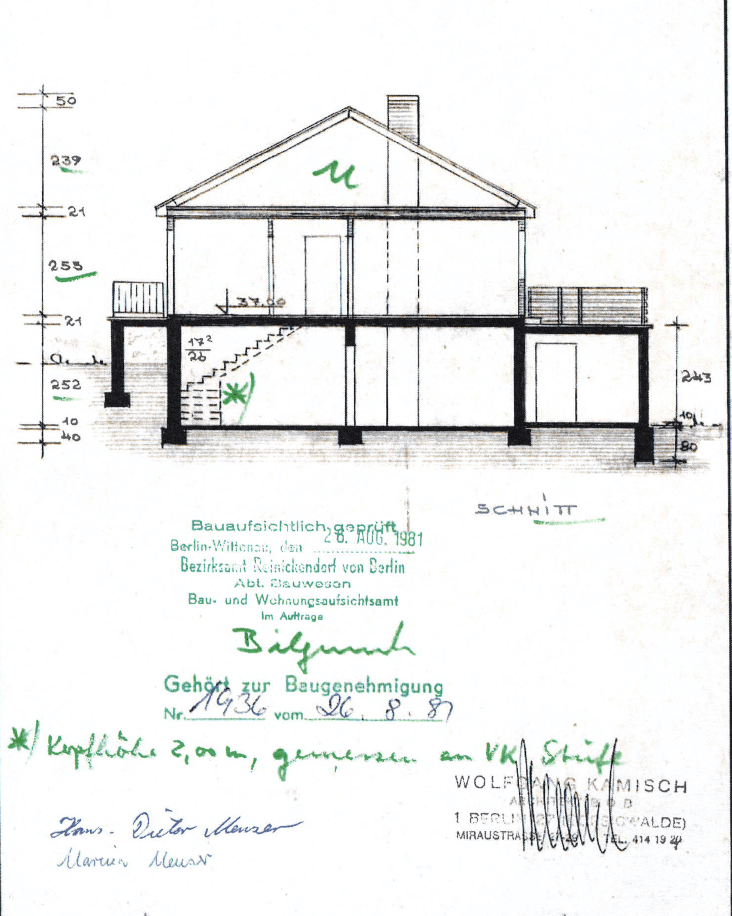 50
239
21
255
21
252
10
40
u
37.00
17²
26
*)
243
10
80
SCHNITT
Bauaufsichtlich geprüft
Berlin-Wittenau, den 26. AUG. 1981
Bezirksamt Reinickendorf von Berlin
Abt. Bauwesen
Bau- und Wohnungsaufsichtsamt
Im Auftrage
Gehört zur Baugenehmigung
Nr. 1936 vom 26. 8. 81
*) Kopfhöhe 2,00 m, gemessen an VK Stufe
WOLFGANG KAMISCH
1 BERLIN
MIRAUSTRASSE TEL. 414 19 29
Hans-Dieter Menser
Marina Menser